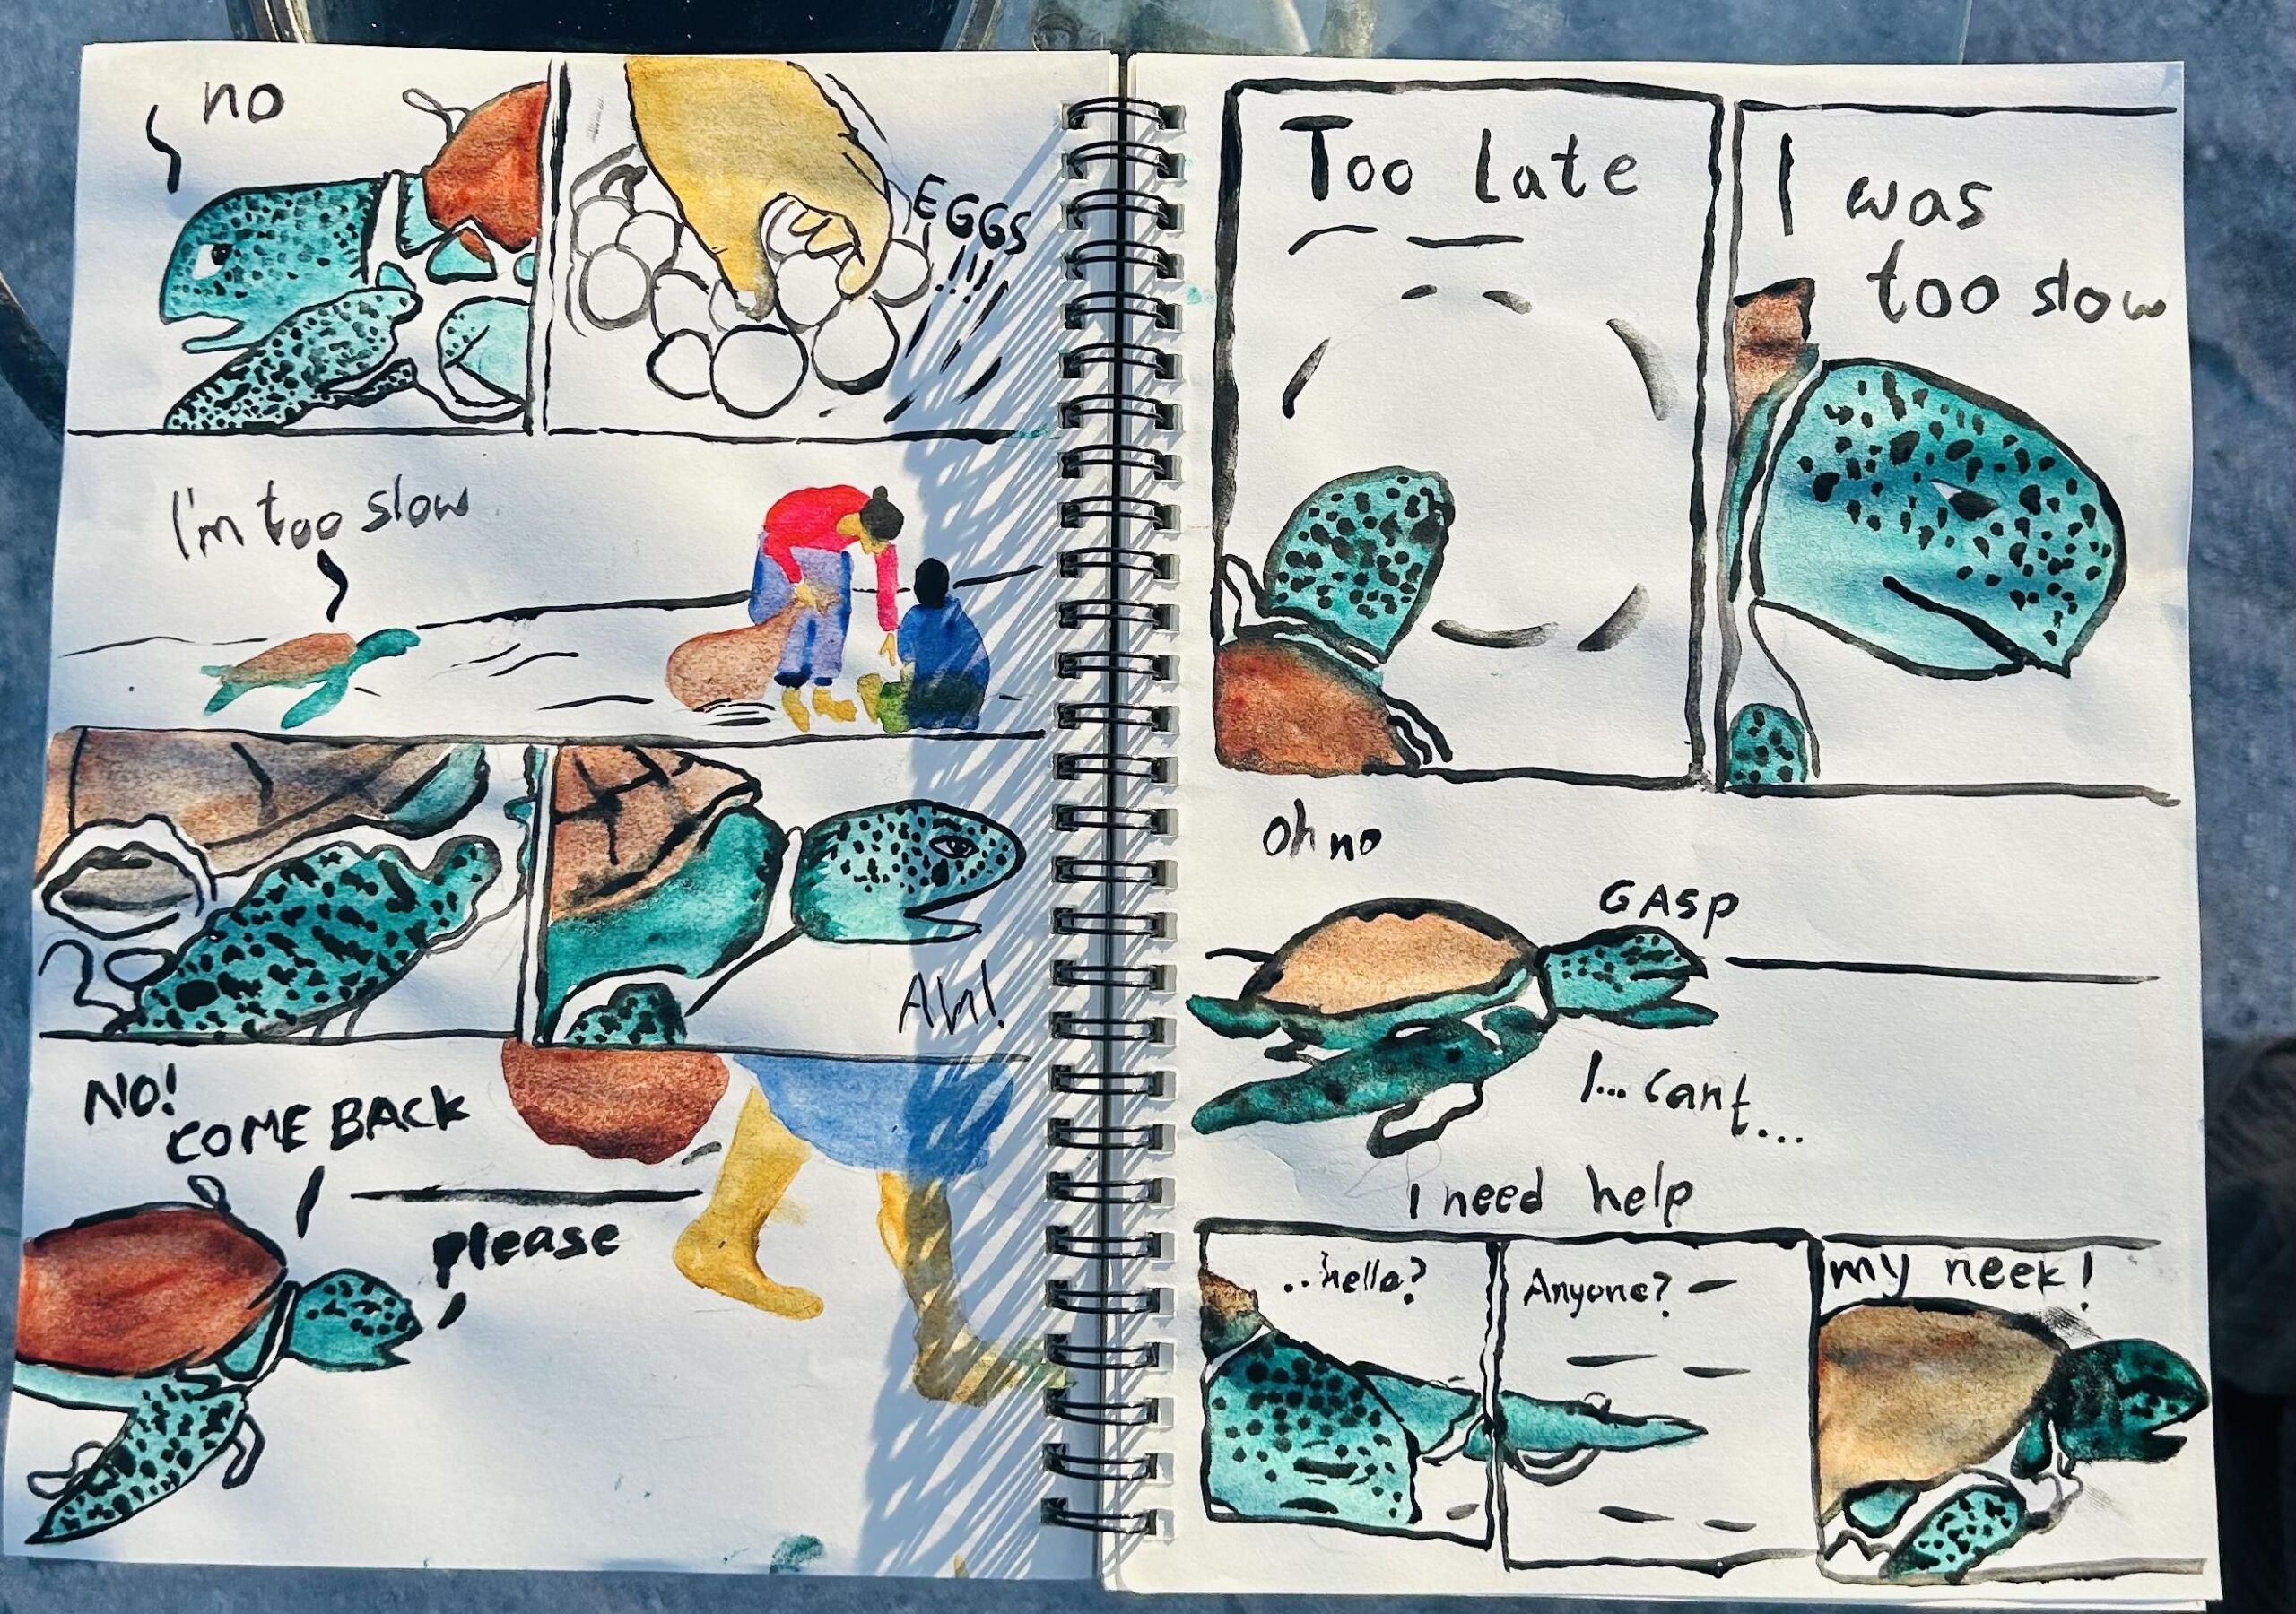 no
EGGS
!!!!
I'm too slow
Ah!
NO!
COME BACK
please
Too late
I was
too slow
oh no
GASP
I... cant...
I need help
..hello?
Anyone?
my neck!